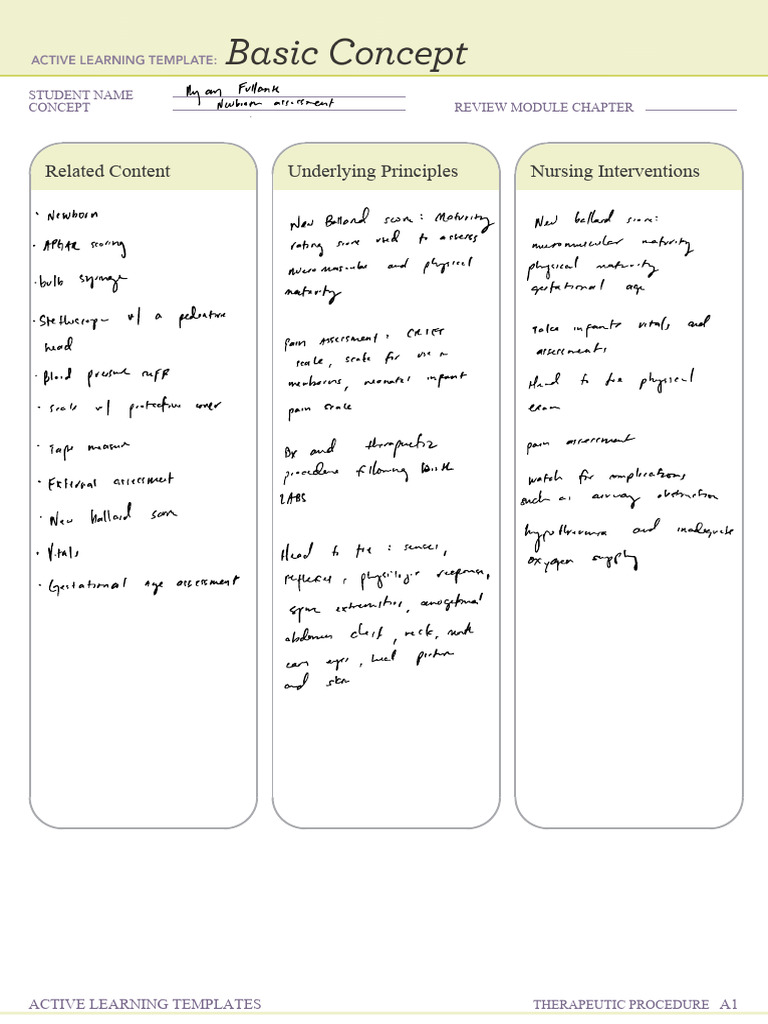 ACTIVE LEARNING TEMPLATE: Basic Concept
STUDENT NAME Ryan
CONCEPT Newborn assessment
REVIEW MODULE CHAPTER
Related Content
• Newborn
• APGAR scoring
• bulb syringe
• Stethoscope w/ a pediatric
head
• Blood pressure cuff
• scale w/ protective cover
• Tape measure
• External assessment
• New ballard score
• Vitals
• Gestational age assessment
Underlying Principles
New Ballard score: Maturity
rating score used to assess
neuromuscular and physical
maturity
pain assessment: CRIES
scale, scale for use in
newborns, neonatal infant
pain scale
Dx and therapeutic
procedure following birth
LABS
Head to toe: senses,
reflexes, physiologic response,
spine extremities, anogenital
abdomen chest, neck, mouth
ears eyes, head posture
and skin
Nursing Interventions
New ballard score:
neuromuscular maturity
physical maturity
gestational age
Take infants vitals and
assessments
Head to toe physical
exam
pain assessment
watch for complications
such as airway obstruction
hypothermia and inadequate
oxygen supply
ACTIVE LEARNING TEMPLATES
THERAPEUTIC PROCEDURE A1